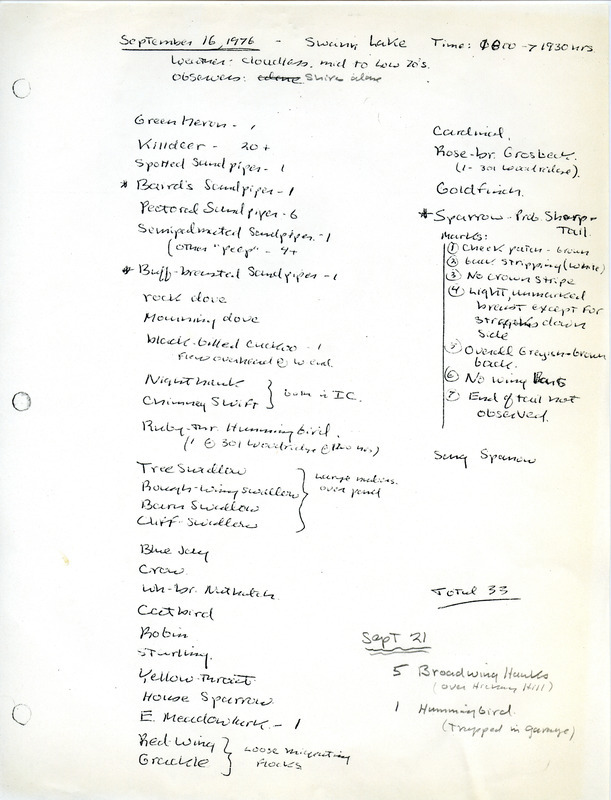 September 16, 1976 - Swan Lake Time: 0800 → 1930 hrs.
Weather: Cloudless, mid to low 70's.
Observers: Shive alone
Green Heron - 1
Killdeer - 20+
Spotted Sandpiper - 1
* Baird's Sandpiper - 1
Pectoral Sandpiper - 6
Semipalmated Sandpiper - 1
(other "peep" - 4+
* Buff-breasted Sandpiper - 1
rock dove
Mourning dove
black-billed Cuckoo - 1
Flew overhead @ W end.
Nighthawk
Chimney Swift } both in IC.
Ruby-thr. Hummingbird.
(1 @ 301 Woodridge @ 1200 hrs)
Tree Swallow
Rough-wing Swallow
Barn Swallow
Cliff Swallow
} large
over pond
Blue Jay
Crow
Wh-br. Nuthatch
Catbird
Robin
Starling.
Yellow-throat
House Sparrow
E. Meadowlark - 1
Red-wing
Grackle
} loose migrating
flocks
Cardinal.
Rose-br. Grosbeck.
(1 - 301 Woodridge).
Goldfinch.
* Sparrow - Prob. Sharp-
Tail.
Marks:
① Cheek patch - brown
② back stripping (white)
③ No crown Stripe
④ Light, unmarked
breast except for
down
side
⑤ Overall Greyish-brown
back.
⑥ No wing Bars
⑦ End of tail not
observed.
Song Sparrow
Total 33
Sept 21
5 Broadwing Hawks
(over Hickory Hill)
1 Hummingbird.
(Trapped in garage)